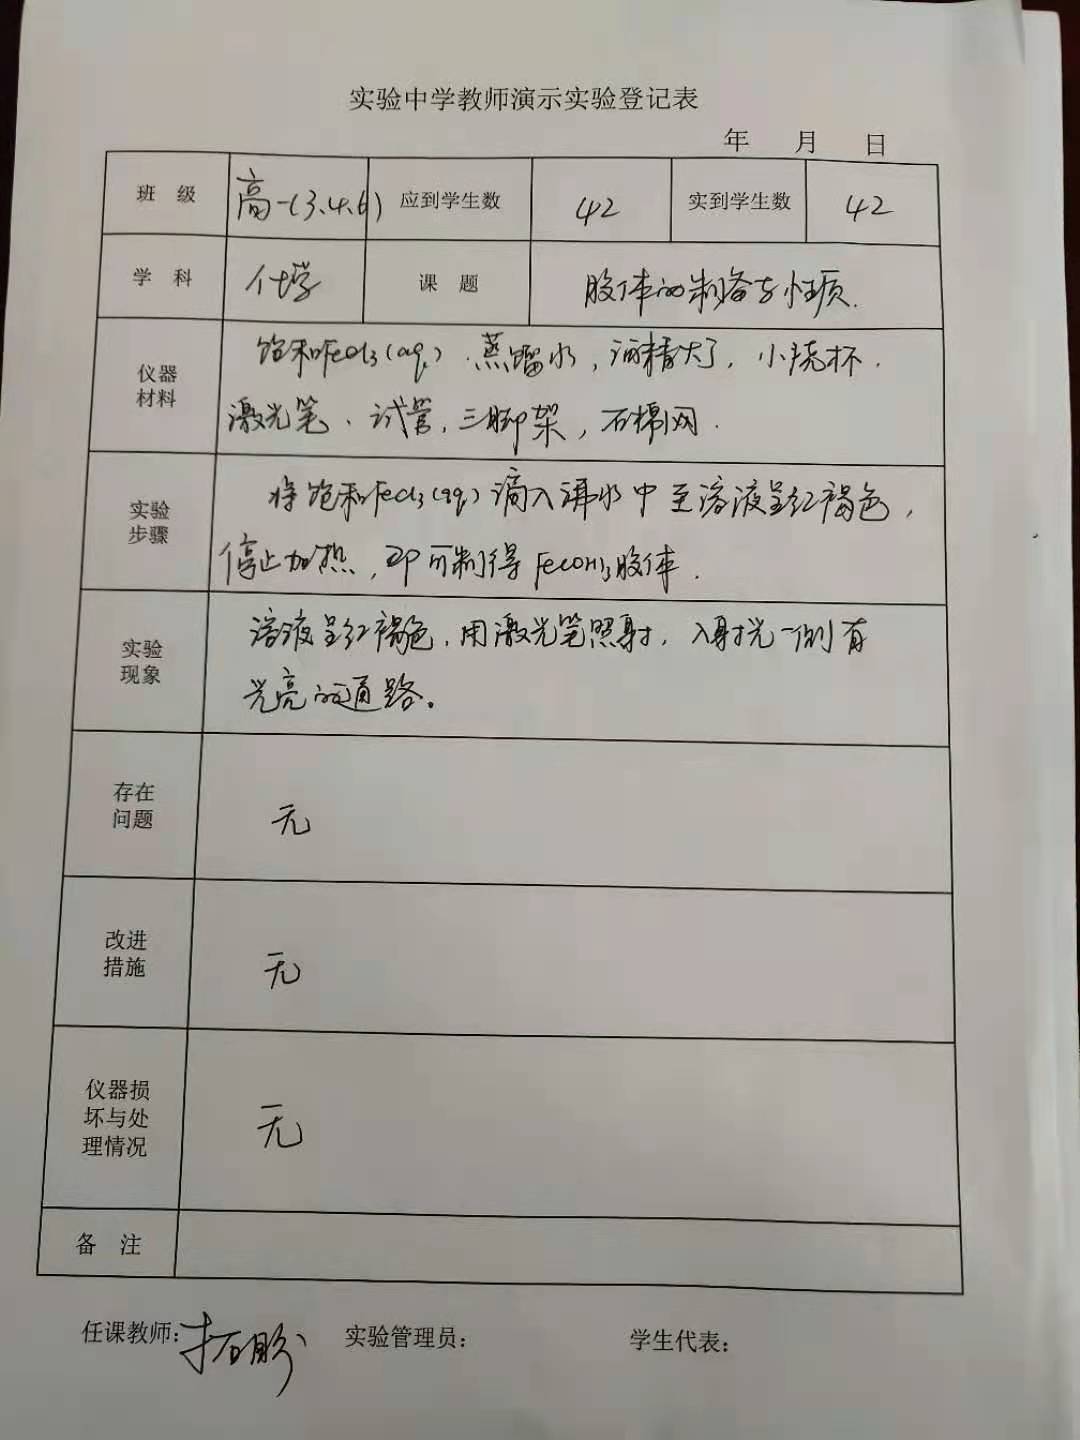 实验中学教师演示实验登记表
年 月 日
班 级 高一(3.4.6) 应到学生数 42 实到学生数 42
学 科 化学 课 题 胶体的制备与性质.
仪器
材料
饱和FeCl3(aq)、蒸馏水,酒精灯,小烧杯.
激光笔、试管,三脚架,石棉网.
实验
步骤
将饱和FeCl3(aq)滴入沸水中至溶液呈红褐色,
停止加热,即可制得Fe(OH)3胶体.
实验
现象
溶液呈红褐色,用激光笔照射,入射光一侧有
光亮的通路。
存在
问题
无
改进
措施
无
仪器损
坏与处
理情况
无
备 注
任课教师: 实验管理员: 学生代表: